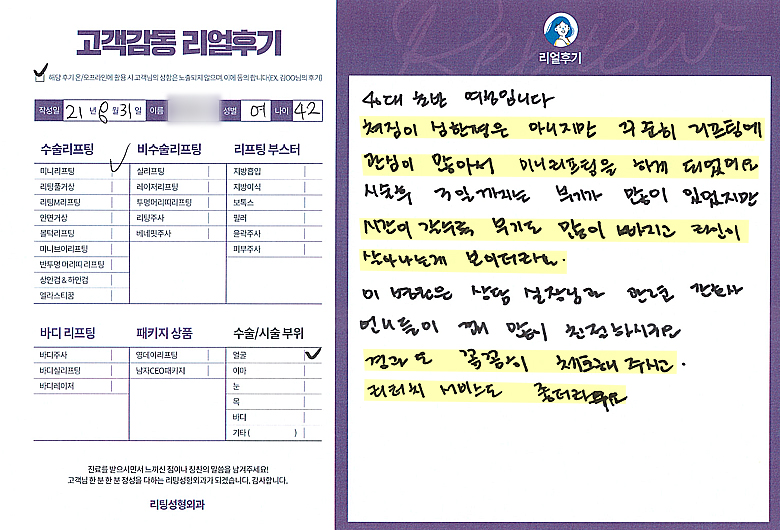 고객감동 리얼후기
해당 후기 온/오프라인에 활용 시 고객님의 성함은 노출되지 않으며, 이에 동의 합니다(EX. 김OO님의 후기)
작성일 21년 8월 31일 이름 성별 여 나이 42
수술리프팅
미니리프팅
리팅풀거상
리팅M리프팅
안면거상
볼턱리프팅
미니브이리프팅
반투명 이리띠 리프팅
상안검 & 하안검
엘라스티꿈
비수술리프팅
실리프팅
레이저리프팅
투명머리띠리프팅
리팅주사
베네핏주사
리프팅 부스터
지방흡입
지방이식
보톡스
필러
윤곽주사
피부주사
바디 리프팅
바디주사
바디실리프팅
바디레이저
패키지 상품
영데이리프팅
남자CEO패키지
수술/시술 부위
얼굴
이마
눈
목
바디
기타 ( )
진료를 받으시면서 느끼신 점이나 칭찬의 말씀을 남겨주세요!
고객님 한 분 한 분 정성을 다하는 리팅성형외과가 되겠습니다. 감사합니다.
리팅성형외과
Review
리얼후기
40대 초반 여성입니다
처짐이 심한편은 아니지만 꾸준히 리프팅에
관심이 많아서 미니리프팅을 하게 되었어요
시술후 3일까지는 붓기가 많이 있었지만
시간이 갈수록 붓기도 많이 빠지고 라인이
살아나는게 보이더라구요.
이 병원은 상담 실장님과 간호사
언니들이 많이 친절하시구요
경과도 꼼꼼히 체크해 주시고.
리터치 서비스도 좋더라구요